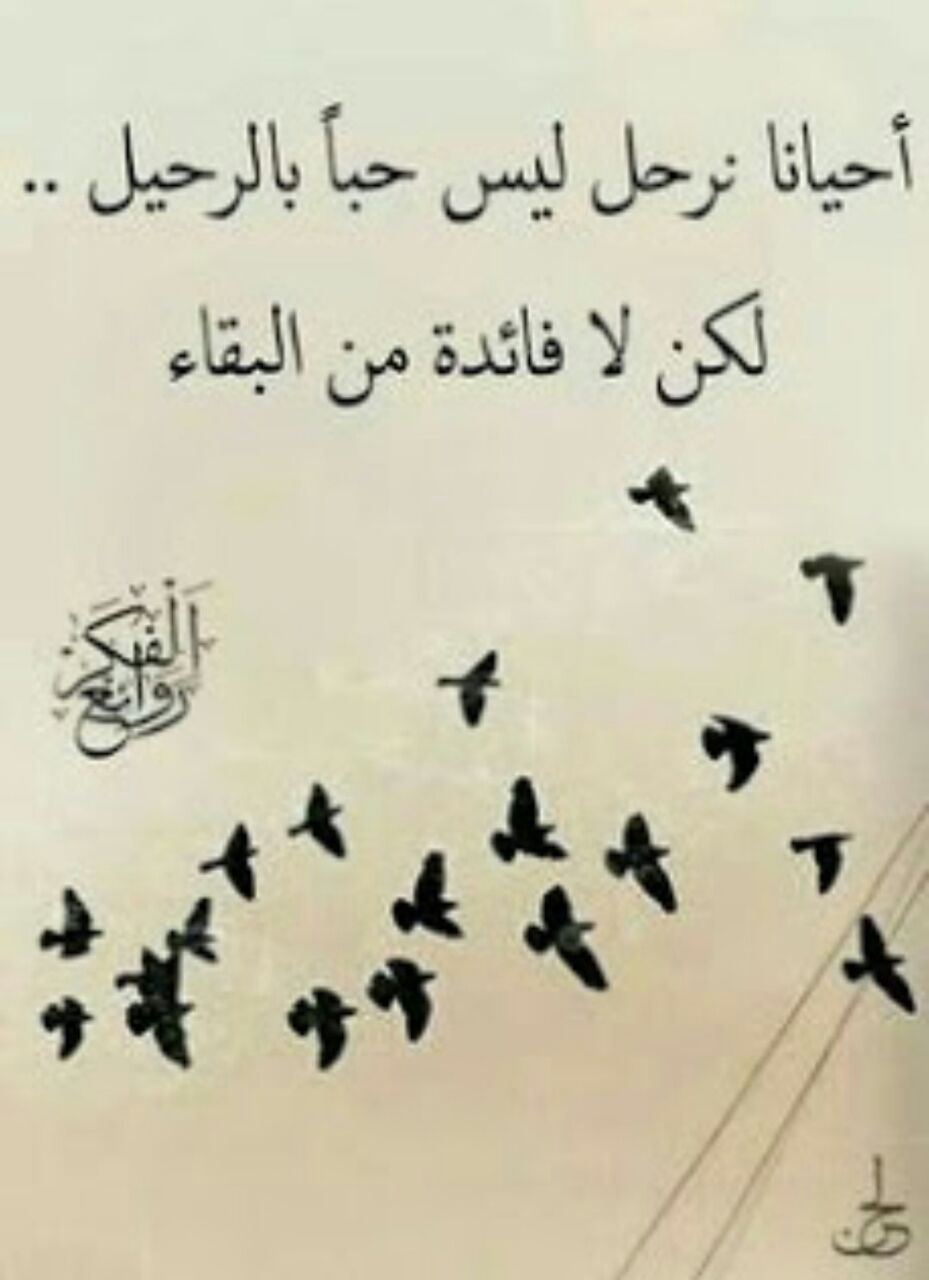 أحيانا نرحل ليس حباً بالرحيل ..
لكن لا فائدة من البقاء
روائع
الفكر